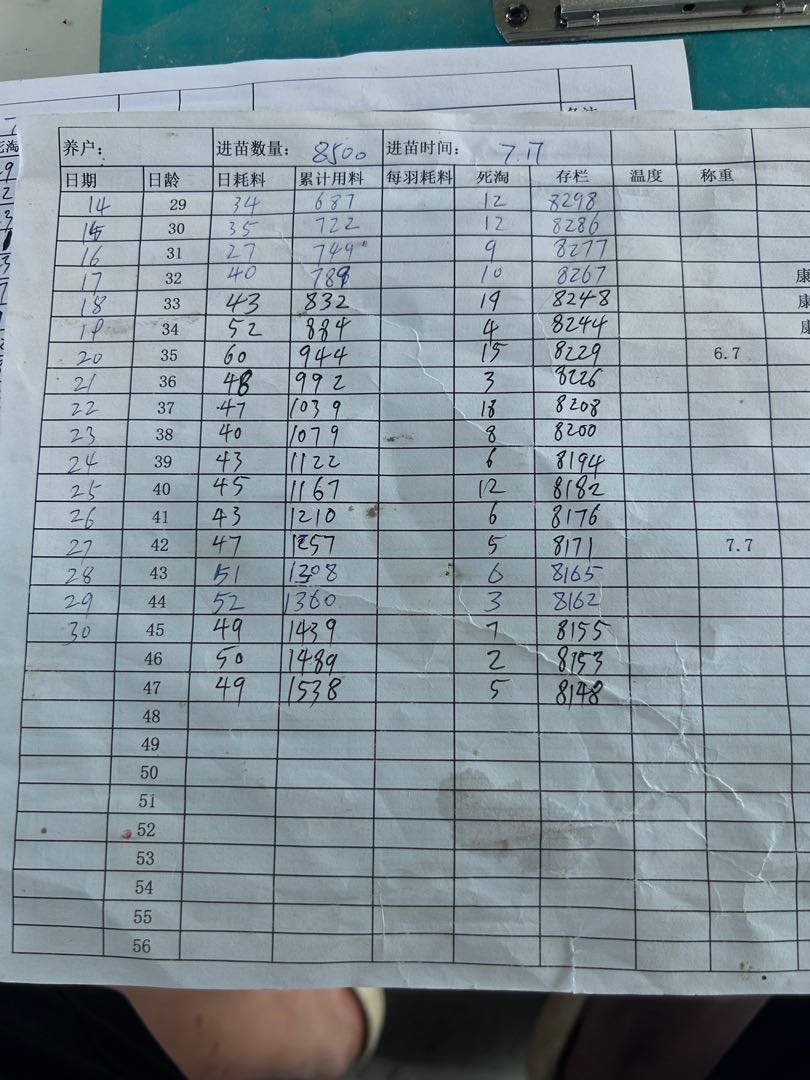 养户： 进苗数量： 8500 进苗时间： 7.17
日期 日龄 日耗料 累计用料 每羽耗料 死淘 存栏 温度 称重
14 29 34 687 12 8298
15 30 35 722 12 8286
16 31 27 749 9 8277
17 32 40 789 10 8267 康
18 33 43 832 19 8248 康
19 34 52 884 4 8244 康
20 35 60 944 15 8229 6.7
21 36 48 992 3 8226
22 37 47 1039 18 8208
23 38 40 1079 8 8200
24 39 43 1122 6 8194
25 40 45 1167 12 8182
26 41 43 1210 6 8176
27 42 47 1257 5 8171 7.7
28 43 51 1308 6 8165
29 44 52 1360 3 8162
30 45 49 1439 7 8155
46 50 1489 2 8153
47 49 1538 5 8148
48
49
50
51
52
53
54
55
56